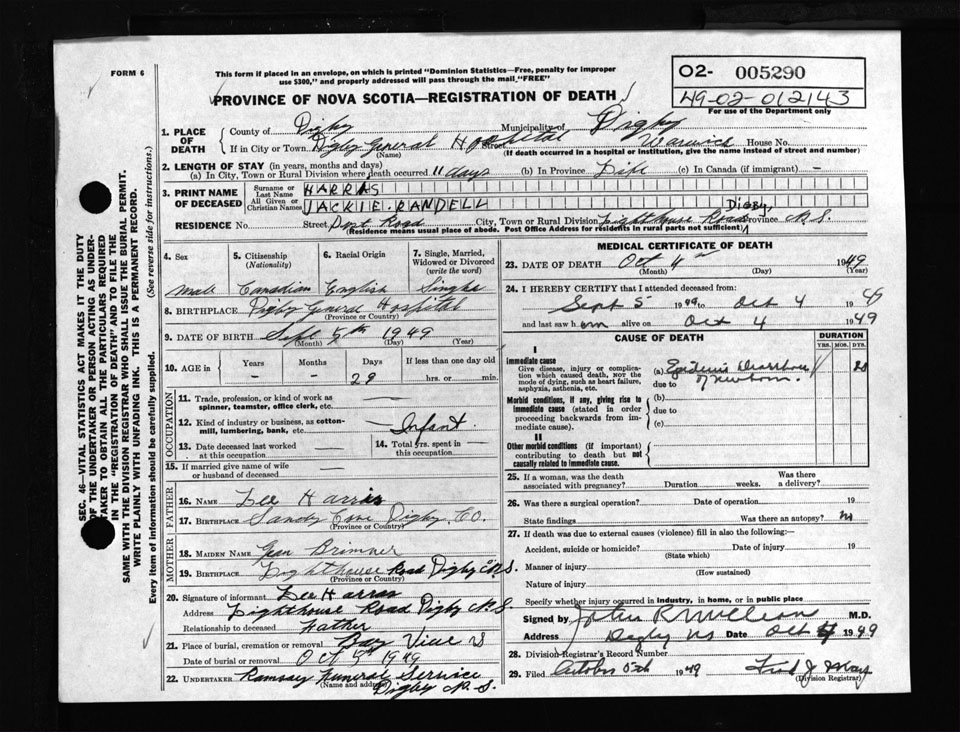 FORM 6
This form if placed in an envelope, on which is printed "Dominion Statistics—Free, penalty for improper
use $300," and properly addressed will pass through the mail "FREE"
02- 005290
49-02-012143
For use of the Department only
PROVINCE OF NOVA SCOTIA—REGISTRATION OF DEATH
1. PLACE OF DEATH
County of Digby Municipality of Digby
If in City or Town Digby General Hospital Street Warwick House No.
(Name) (If death occurred in a hospital or institution, give the name instead of street and number)
2. LENGTH OF STAY (in years, months and days)
(a) In City, Town or Rural Division where death occurred 11 days (b) In Province Life (c) In Canada (if immigrant) —
3. PRINT NAME OF DECEASED
Surname or Last Name HARRAS
All Given or Christian Names JACKIE. RANDELL
RESIDENCE No. Street Post Road City, Town or Rural Division Lighthouse Road DIGBY, Province N.S.
(Residence means usual place of abode. Post Office Address for residents in rural parts not sufficient)
4. Sex
5. Citizenship
(Nationality)
6. Racial Origin
7. Single, Married,
Widowed or Divorced
(write the word)
Male Canadian English Single
8. BIRTHPLACE Digby General Hospital
(Province or Country)
9. DATE OF BIRTH Sept 5th 1949
(Month) (Day) (Year)
10. AGE in
Years Months Days If less than one day old
— — 29 hrs. or min.
OCCUPATION
11. Trade, profession, or kind of work as
spinner, teamster, office clerk, etc. —
12. Kind of industry or business, as cotton-
mill, lumbering, bank, etc. Infant
13. Date deceased last worked
at this occupation —
14. Total yrs. spent in
this occupation —
15. If married give name of wife
or husband of deceased —
FATHER
16. NAME Lee Harras
17. BIRTHPLACE Sandy Cove Digby CO.
(Province or Country)
MOTHER
18. MAIDEN NAME Jean Brimner
19. BIRTHPLACE Lighthouse Road Digby N.S.
(Province or Country)
20. Signature of informant Lee Harras
Address Lighthouse Road Digby N.S
Relationship to deceased Father
21. Place of burial, cremation or removal Bay View NS
Date of burial or removal Oct 5th 1949
22. UNDERTAKER Ramsay Funeral Service
(Name and address) Digby N.S.
MEDICAL CERTIFICATE OF DEATH
23. DATE OF DEATH Oct 4 1949
(Month) (Day) (Year)
24. I HEREBY CERTIFY that I attended deceased from:
Sept 5 1949 to Oct 4 1949
and last saw him alive on Oct 4 1949
CAUSE OF DEATH
DURATION
YRS. MOS. DYS.
I
Immediate cause
Give disease, injury or complica-
tion which caused death, not the
mode of dying, such as heart failure,
asphyxia, asthenia, etc.
(a) Epidemic Diarrhoea
due to of newborn.
Morbid conditions, if any, giving rise to
immediate cause (stated in order
proceeding backwards from im-
mediate cause).
(b)
due to
(c)
II
Other morbid conditions (if important)
contributing to death but not
causally related to immediate cause.
25. If a woman, was the death
associated with pregnancy? Duration weeks. Was there
a delivery?
26. Was there a surgical operation? Date of operation 19
State findings Was there an autopsy? no
27. If death was due to external causes (violence) fill in also the following:—
Accident, suicide or homicide? Date of injury 19
(State which)
Manner of injury
(How sustained)
Nature of injury
Specify whether injury occurred in industry, in home, or in public place
Signed by M.D.
Address Digby NS Date Oct 4 1949
28. Division Registrar's Record Number
29. Filed October 5th 1949 Fred J
(Division Registrar)
SEC. 46—VITAL STATISTICS ACT MAKES IT THE DUTY
OF THE UNDERTAKER OR PERSON ACTING AS UNDER-
TAKER TO OBTAIN ALL THE PARTICULARS REQUIRED
IN THE "REGISTRATION OF DEATH" AND TO FILE THE
SAME WITH THE DIVISION REGISTRAR WHO SHALL ISSUE THE BURIAL PERMIT.
WRITE PLAINLY WITH UNFADING INK. THIS IS A PERMANENT RECORD.
Every item of information should be carefully supplied. (See reverse side for instructions.)